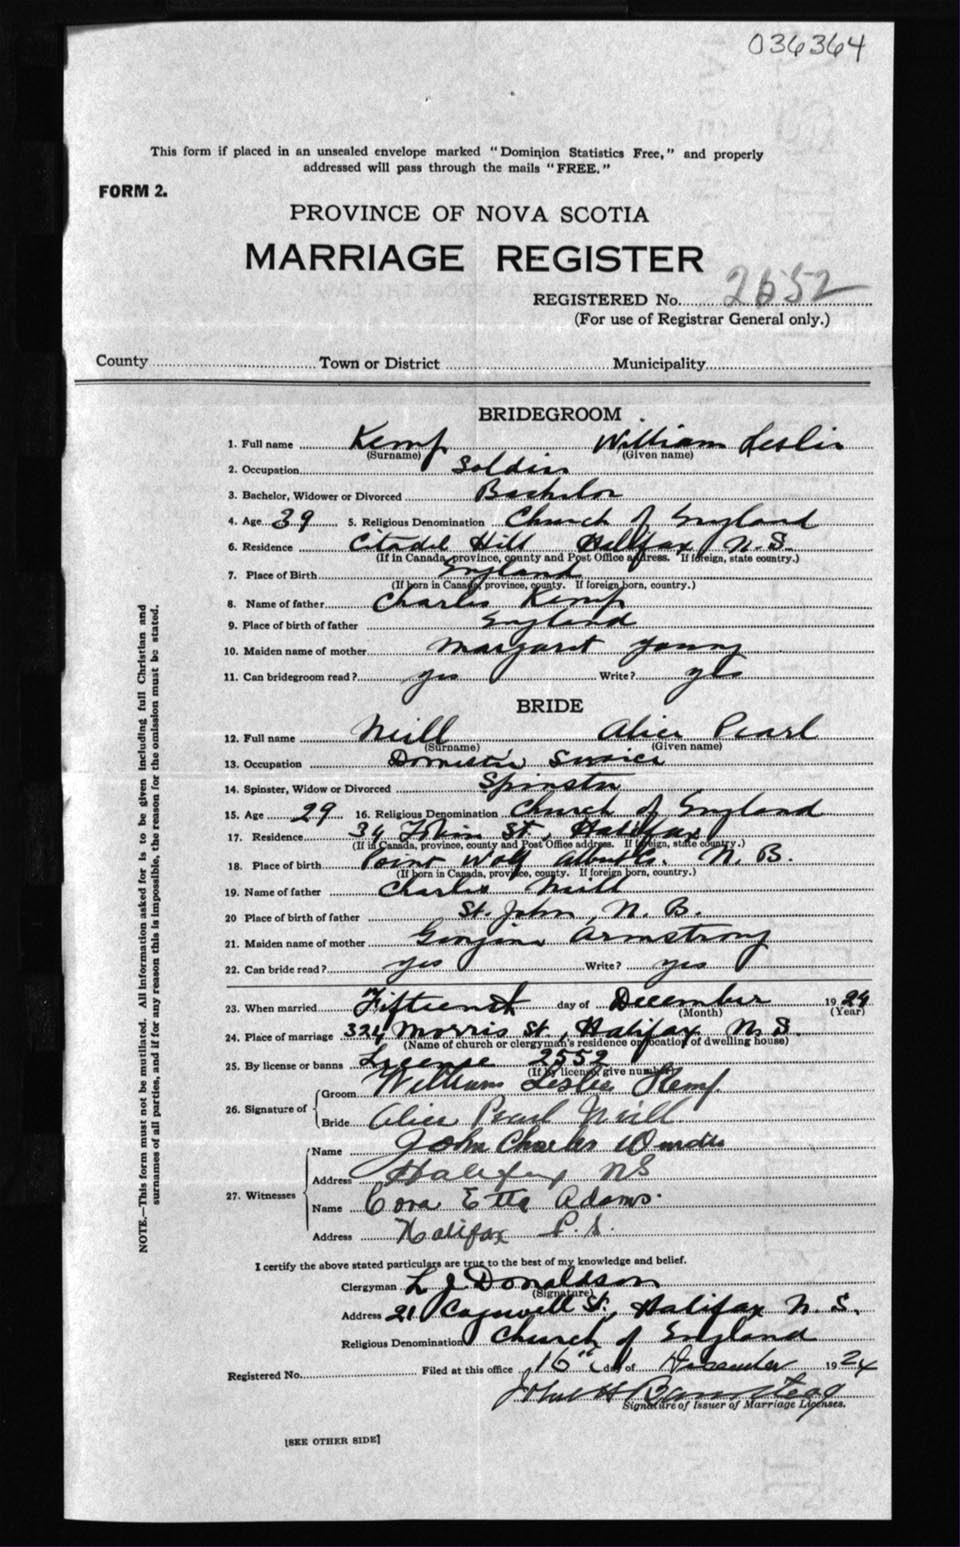 036364
This form if placed in an unsealed envelope marked "Dominion Statistics Free," and properly
addressed will pass through the mails "FREE."
FORM 2.
PROVINCE OF NOVA SCOTIA
MARRIAGE REGISTER
REGISTERED No. 2552
(For use of Registrar General only.)
County Town or District Municipality
BRIDEGROOM
1. Full name Kemp William Leslie
(Surname) (Given name)
2. Occupation Soldier
3. Bachelor, Widower or Divorced Bachelor
4. Age 39 5. Religious Denomination Church of England
6. Residence Citadel Hill Halifax N.S.
(If in Canada, province, county and Post Office address. If foreign, state country.)
7. Place of Birth England
(If born in Canada, province, county. If foreign born, country.)
8. Name of father Charles Kemp
9. Place of birth of father England
10. Maiden name of mother Margaret Young
11. Can bridegroom read? yes Write? yes
BRIDE
12. Full name Neill Alice Pearl
(Surname) (Given name)
13. Occupation Domestic Service
14. Spinster, Widow or Divorced Spinster
15. Age 29 16. Religious Denomination Church of England
17. Residence 34 St., Halifax
(If in Canada, province, county and Post Office address. If foreign, state country.)
18. Place of birth Point Wolf Albert Co. N.B.
(If born in Canada, province, county. If foreign born, country.)
19. Name of father Charles Neill
20 Place of birth of father St. John, N.B.
21. Maiden name of mother Armstrong
22. Can bride read? yes Write? yes
23. When married Fifteenth day of December 1924
(Month) (Year)
24. Place of marriage 324 Morris St., Halifax N.S.
(Name of church or clergyman's residence or location of dwelling house)
25. By license or banns License 2552
(If by license, give number)
26. Signature of Groom William Leslie Kemp
Bride Alice Pearl Neill
27. Witnesses Name John Charles
Address Halifax NS
Name Cora Etta Adams.
Address Halifax
I certify the above stated particulars are true to the best of my knowledge and belief.
Clergyman L J Donaldson
(Signature)
Address 21 Cogswell St., Halifax N.S.
Religious Denomination Church of England
Registered No. Filed at this office 16th day of December 1924
John H
Signature of Issuer of Marriage Licenses.
[SEE OTHER SIDE]
NOTE.—This form must not be mutilated. All information asked for is to be given including full Christian and
surnames of all parties, and if for any reason this is impossible, the reason for the omission must be stated.